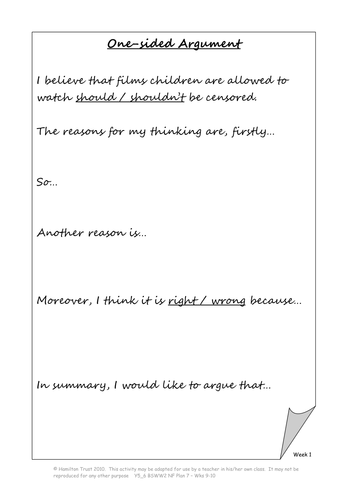 One-sided Argument
I believe that films children are allowed to
watch should / shouldn't be censored.
The reasons for my thinking are, firstly...
So...
Another reason is...
Moreover, I think it is right / wrong because...
In summary, I would like to argue that...
Week 1
© Hamilton Trust 2010. This activity may be adapted for use by a teacher in his/her own class. It may not be
reproduced for any other purpose Y5_6 BGWW2 NF Plan 7 – Wks 9-10